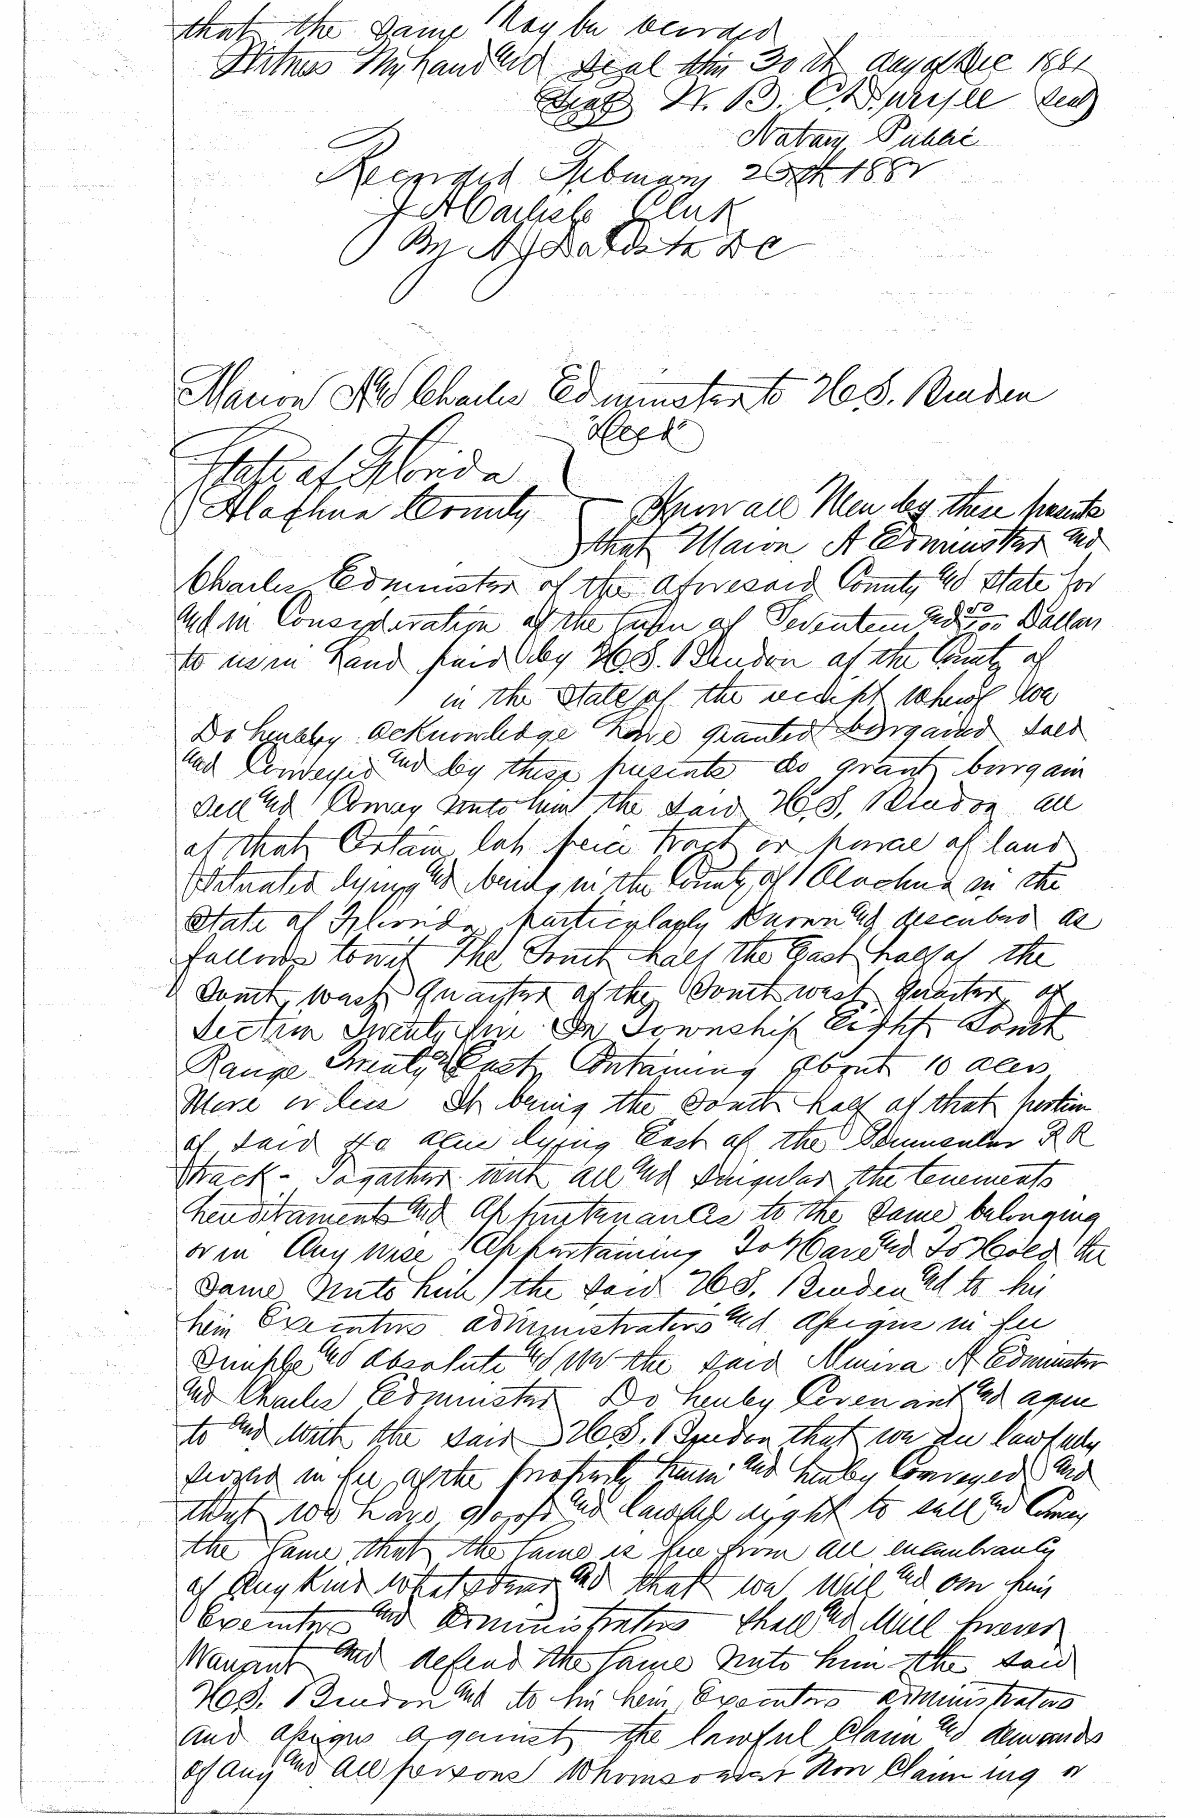 that the same May be recorded
Witness My hand and Seal this 30th day of Dec 1881
Seal W. B. C. Duryee Seal
Notary Public
Recorded February 26th 1882
J A Carlisle Clerk
By DC
Marion And Charles Edminster to H. S. Burden
Deed
State of Florida
Alachua County Know all Men by these presents
that Marion A Edminster and
Charles Edminster of the aforesaid County and State for
and in Consideration of the Sum of Seventeen and 50/100 Dollars
to us in hand paid by H. S. Burdon of the County of
in the State of the receipt whereof we
Do hereby acknowledge have granted bargained sold
and Conveyed and by these presents do grant bargain
sell and Convey unto him the said H. S. Burdon all
of that Certain lot peice tract or parcel of land
Situated lying and being in the County of Alachua in the
State of Florida particularly Known and described as
follows towit The South half the East half of the
South west Quarter of the South west Quarter of
Section Twenty five In Township Eight South
Range Twenty East Containing about 10 acers
More or less It being the South half of that portion
of said 40 acres lying East of the Penunsular R R
track - Together with all and singular the tenements
hereditaments and Appurtenances to the same belonging
or in Any wise Appertaining To Have and To Hold the
same unto him the said H. S. Burden and to his
heirs Executors administrators and assigns in fee
Simple and absolute and we the said A Edminster
and Charles Edminister Do hereby Covenant and agree
to and with the said H. S. Burdon that we are lawfully
seized in fee of the property herein and hereby Conveyed and
that we have good and lawful right to sell and Convey
the same that the same is free from all
of Any Kind whatsoever and that we will and our heirs
Executors and administrators shall and will forever
Warrant and defend the same unto him the said
H. S. Burdon and to his heirs Executors administrators
and assigns against the lawful Claim and demands
of any and all persons Whomsoever Now Claiming or